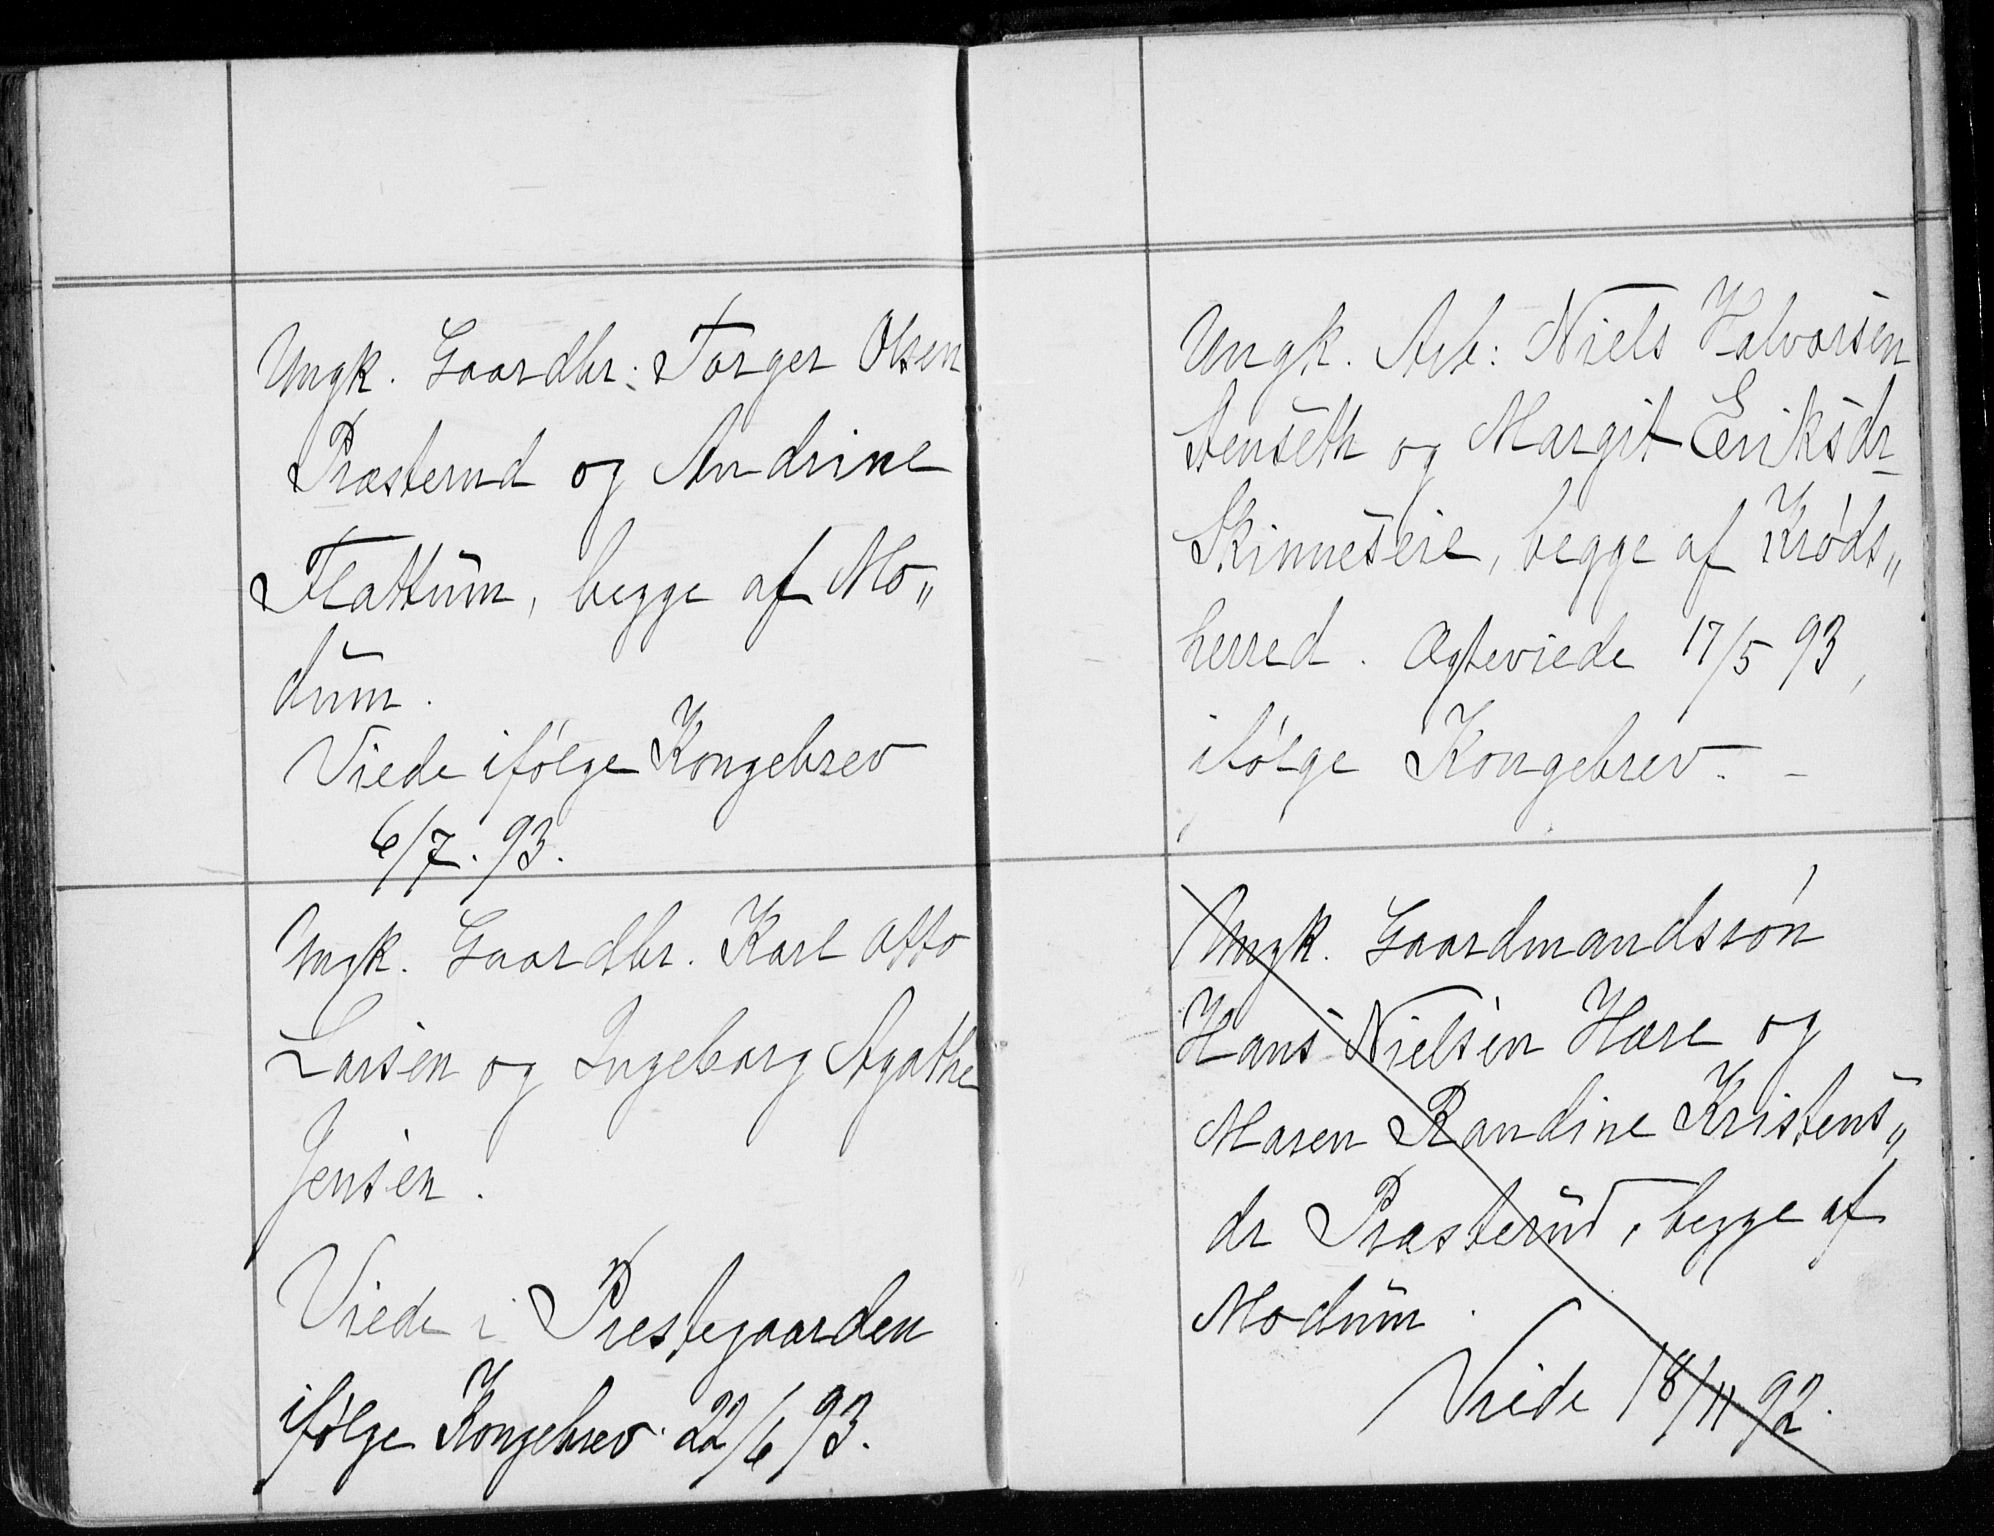 Ungk. Gaardbr. Torger Olsen
Præsterud og Andrine
Flattum, begge af Mo„
dum.
Viede ifølge Kongebrev
6/7. 93.
Ungk. Gaardbr. Karl Otto
Larsen og Ingeborg Agathe
Jensen.
Viede i Prestegaarden
ifølge Kongebrev 22/6 93.
Ungk. Arb: Niels Halvorsen
Stenseth og Margit Eriksdr
Skinneseie, begge af Krøds„
herred. Ægteviede 17/5 93,
ifølge Kongebrev. –
Ungk. Gaardmandssøn
Hans Nielsen Hære og
Maren Randine Kristens„
dr Præsterud, begge af
Modum.
Viede 18/11 92.